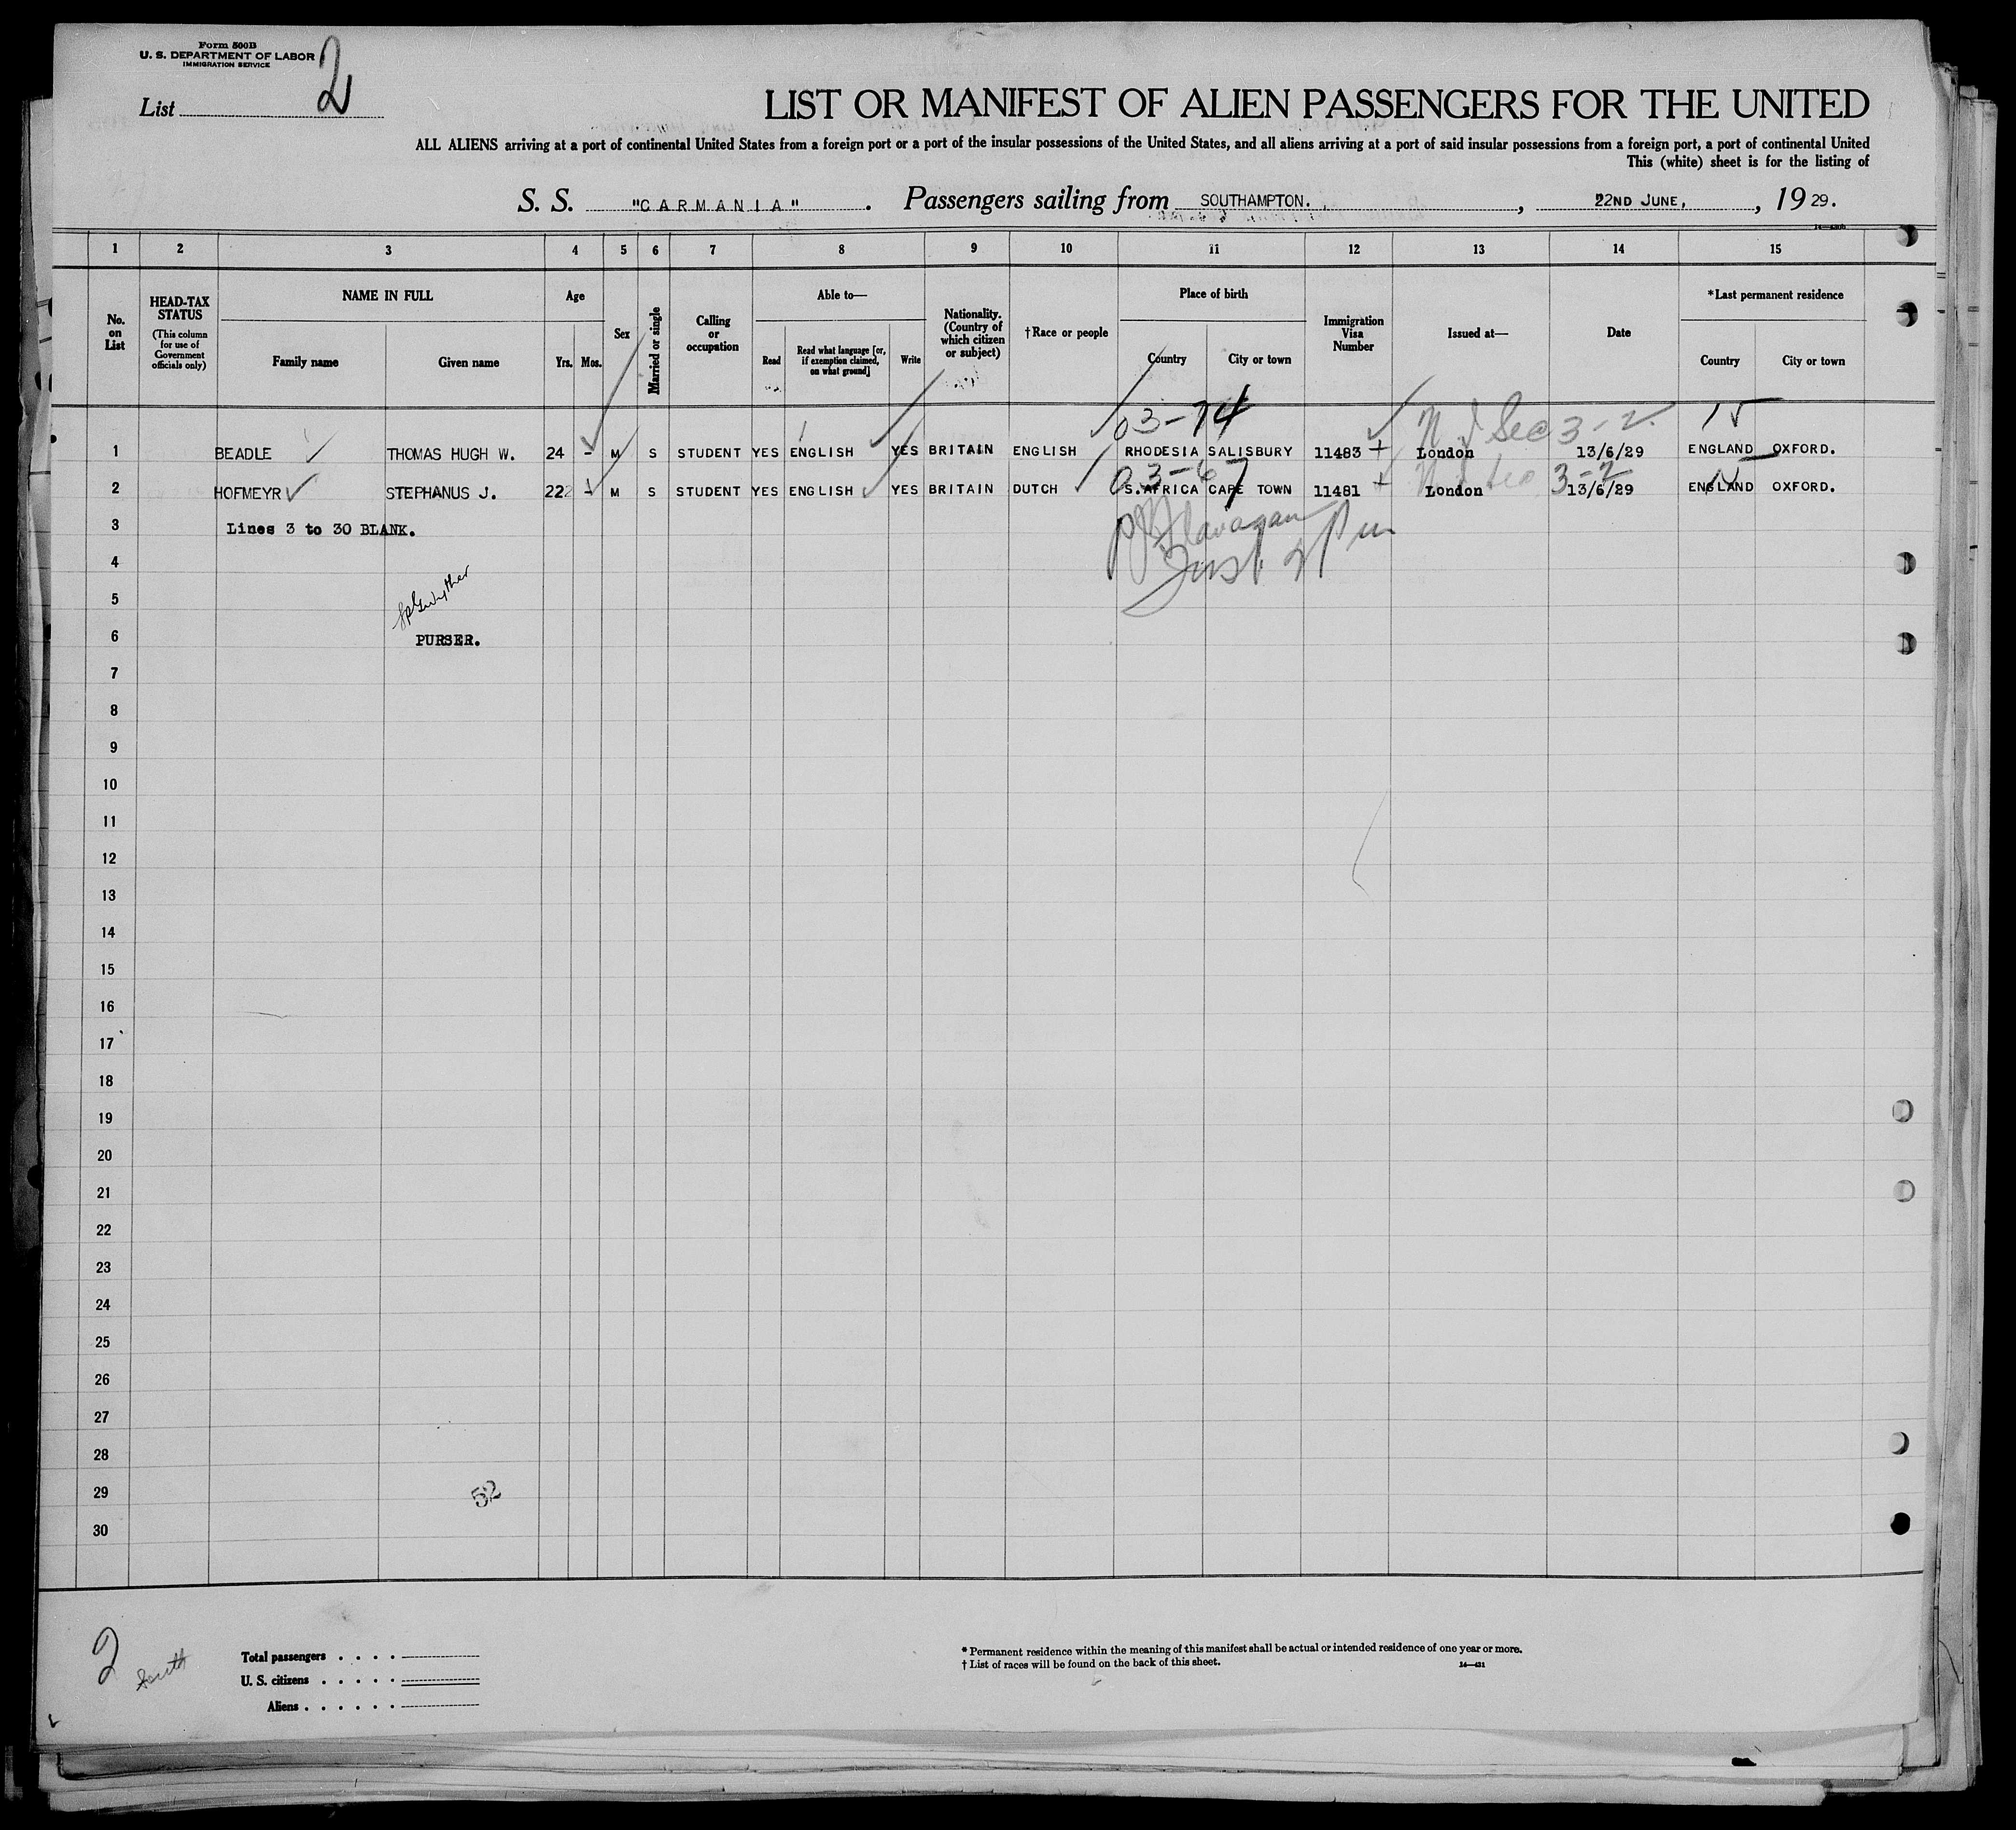 Form 500B
U. S. DEPARTMENT OF LABOR
IMMIGRATION SERVICE
List 2
LIST OR MANIFEST OF ALIEN PASSENGERS FOR THE UNITED
ALL ALIENS arriving at a port of continental United States from a foreign port or a port of the insular possessions of the United States, and all aliens arriving at a port of said insular possessions from a foreign port, a port of continental United
This (white) sheet is for the listing of
S. S. "CARMANIA". Passengers sailing from SOUTHAMPTON., 22ND JUNE, , 19 29.
1 2 3 4 5 6 7 8 9 10 11 12 13 14 15
No. on List
HEAD-TAX STATUS (This column for use of Government officials only)
NAME IN FULL
Family name Given name
Age
Yrs. Mos.
Sex
Married or single
Calling or occupation
Able to—
Read Read what language [or, if exemption claimed, on what ground] Write
Nationality. (Country of which citizen or subject)
†Race or people
Place of birth
Country City or town
Immigration Visa Number
Issued at—
Date
*Last permanent residence
Country City or town
03-74 3-2
1 BEADLE THOMAS HUGH W. 24 - M S STUDENT YES ENGLISH YES BRITAIN ENGLISH RHODESIA SALISBURY 11483 London 13/6/29 ENGLAND OXFORD.
03-67 3-2
2 HOFMEYR STEPHANUS J. 22 - M S STUDENT YES ENGLISH YES BRITAIN DUTCH S.AFRICA CAPE TOWN 11481 London 13/6/29 ENGLAND OXFORD.
3 Lines 3 to 30 BLANK.
4
5
6 PURSER.
7
8
9
10
11
12
13
14
15
16
17
18
19
20
21
22
23
24
25
26
27
28
29 52
30
2 South
Total passengers . . . .
U. S. citizens . . . . .
Aliens . . . . . .
* Permanent residence within the meaning of this manifest shall be actual or intended residence of one year or more.
† List of races will be found on the back of this sheet. 14—431